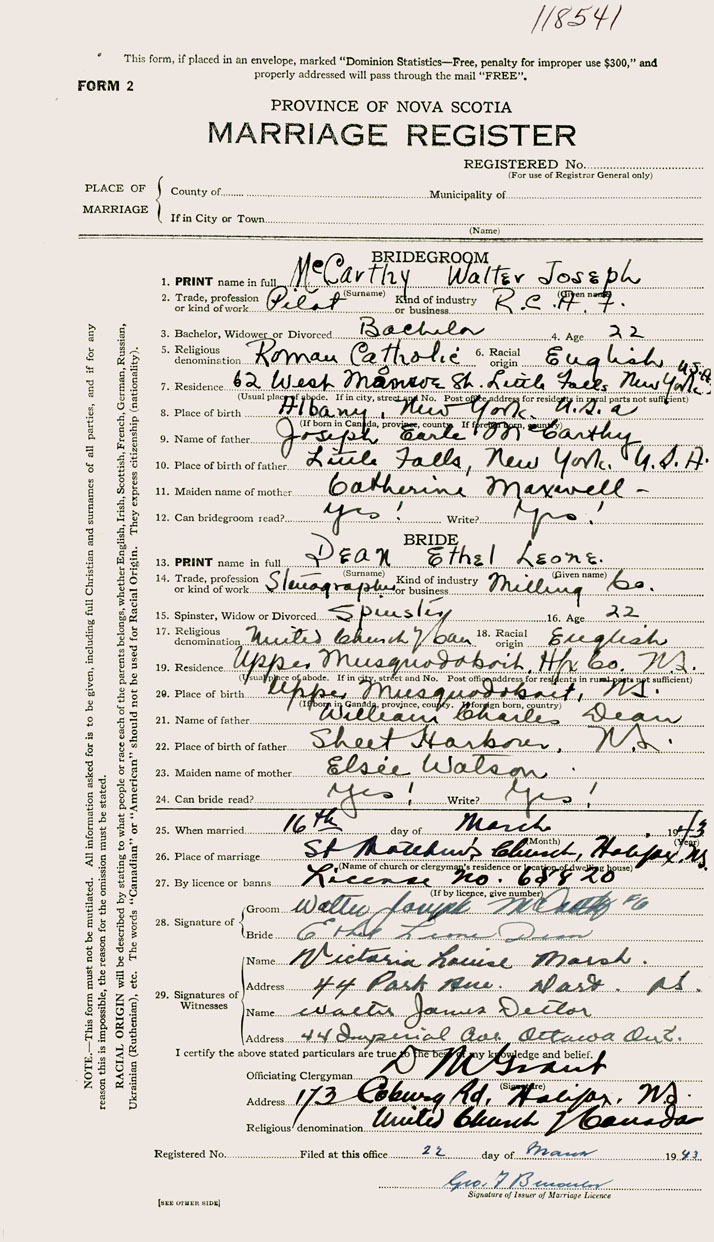 118541
This form, if placed in an envelope, marked "Dominion Statistics—Free, penalty for improper use $300," and
properly addressed will pass through the mail "FREE".
FORM 2
PROVINCE OF NOVA SCOTIA
MARRIAGE REGISTER
REGISTERED No.
(For use of Registrar General only)
PLACE OF MARRIAGE
County of
Municipality of
If in City or Town
(Name)
BRIDEGROOM
1. PRINT name in full McCarthy Walter Joseph
(Surname) (Given name)
2. Trade, profession or kind of work Pilot Kind of industry or business R.C.A.F.
3. Bachelor, Widower or Divorced Bachelor 4. Age 22
5. Religious denomination Roman Catholic 6. Racial origin English
7. Residence 62 West Monroe St. Little Falls, New York. U.S.A.
(Usual place of abode. If in city, street and No. Post office address for residents in rural parts not sufficient)
8. Place of birth Albany, New York. U.S.a
(If born in Canada, province, county. If foreign born, country)
9. Name of father Joseph Earle McCarthy
10. Place of birth of father Little Falls, New York. U.S.A.
11. Maiden name of mother Catherine Maxwell -
12. Can bridegroom read? Yes! Write? Yes!
BRIDE
13. PRINT name in full DEAN Ethel Leone.
(Surname) (Given name)
14. Trade, profession or kind of work Stenographer Kind of industry or business Milling Co.
15. Spinster, Widow or Divorced Spinster 16. Age 22
17. Religious denomination United Church of Can 18. Racial origin English
19. Residence Upper Musquodoboit, Hfx Co. N.S.
(Usual place of abode. If in city, street and No. Post office address for residents in rural parts not sufficient)
20. Place of birth Upper Musquodoboit, N.S.
(If born in Canada, province, county. If foreign born, country)
21. Name of father William Charles Dean
22. Place of birth of father Sheet Harbour, N.S.
23. Maiden name of mother Elsie Watson
24. Can bride read? Yes! Write? Yes!
25. When married 16th day of March, 1943
(Month) (Year)
26. Place of marriage St Matthew's Church, Halifax, N.S.
(Name of church or clergyman's residence or location of dwelling house)
27. By licence or banns License No.
(If by licence, give number)
28. Signature of
Groom Walter Joseph McCarthy
Bride Ethel Leone Dean
29. Signatures of Witnesses
Name Victoria Louise Marsh.
Address 44 Park Ave. Dart. N.S.
Name Walter James
Address 44 Imperial Ave. Ottawa Ont.
I certify the above stated particulars are true to the best of my knowledge and belief.
Officiating Clergyman D M Grant
(Signature)
Address 173 Coburg Rd, Halifax, N.S.
Religious denomination United Church of Canada
Registered No. Filed at this office 22 day of March 1943
Geo. F
Signature of Issuer of Marriage Licence
[SEE OTHER SIDE]
NOTE.—This form must not be mutilated. All information asked for is to be given, including full Christian and surnames of all parties, and if for any
reason this is impossible, the reason for the omission must be stated.
RACIAL ORIGIN will be described by stating to what people or race each of the parents belongs, whether English, Irish, Scottish, French, German, Russian,
Ukrainian (Ruthenian), etc. The words "Canadian" or "American" should not be used for Racial Origin. They express citizenship (nationality).